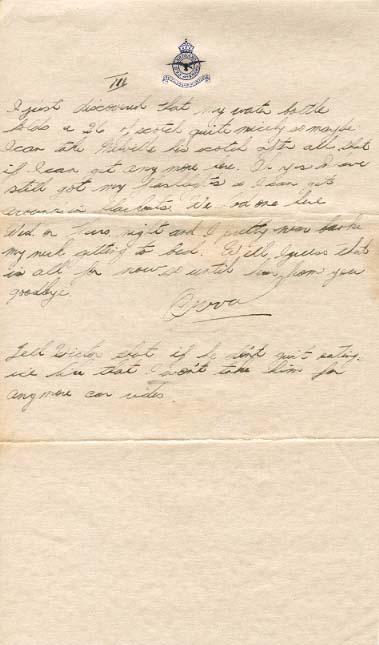 III
I just discovered that my water bottle
holds a 26 of scotch quite nicely so maybe
I can take his scotch after all that
if I can get any more here. Oh yes I have
still got my flashlight so I can get
around in blackouts. We had one here
Wed. or Thurs. night and I pretty near broke
my neck getting to bed. Well, I guess that
is all for now so until I hear from you
goodbye
Tell that if he don't quit eating
ice here that I won't take him for
anymore car rides.